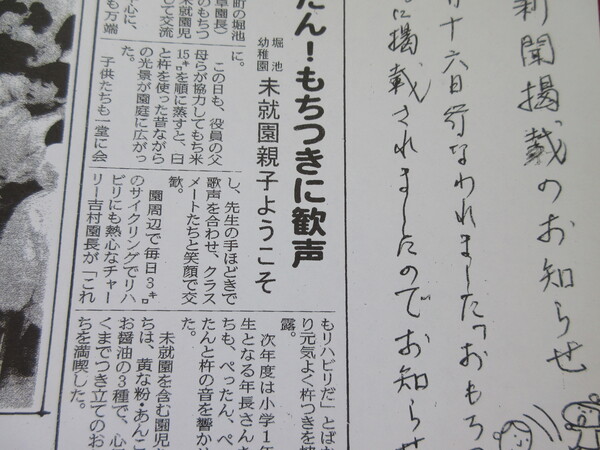 新聞掲載のお知らせ
月十六日行なわれました「おもちつ
に掲載されましたのでお知らせ
たん!もちつきに歓声
堀池
幼稚園
未就園親子ようこそ
町の堀池
草園長)
のもちつ
未就園児
して交流
心に、
も万端
に。
この日も、役員の父
母らが協力してもち米
15㌔を順に蒸すと、臼
と杵を使った昔ながら
の光景が園庭に広がっ
た。
子供たちも一堂に会
し、先生の手ほどきで
歌声を合わせ、クラス
メートたちと笑顔で交
歓。
園周辺で毎日3㌔
のサイクリングでリハ
ビリにも熱心なチャー
リー吉村園長が「これ
もリハビリだ」とばか
り元気よく杵つきを披
露。
次年度は小学1年
生となる年長さんた
ちも、ぺったん、ぺっ
たんと杵の音を響かせ
た。
未就園を含む園児た
ちは、黄な粉・あんこ・
お醤油の3種で、心
くまでつき立てのお
ちを満喫した。